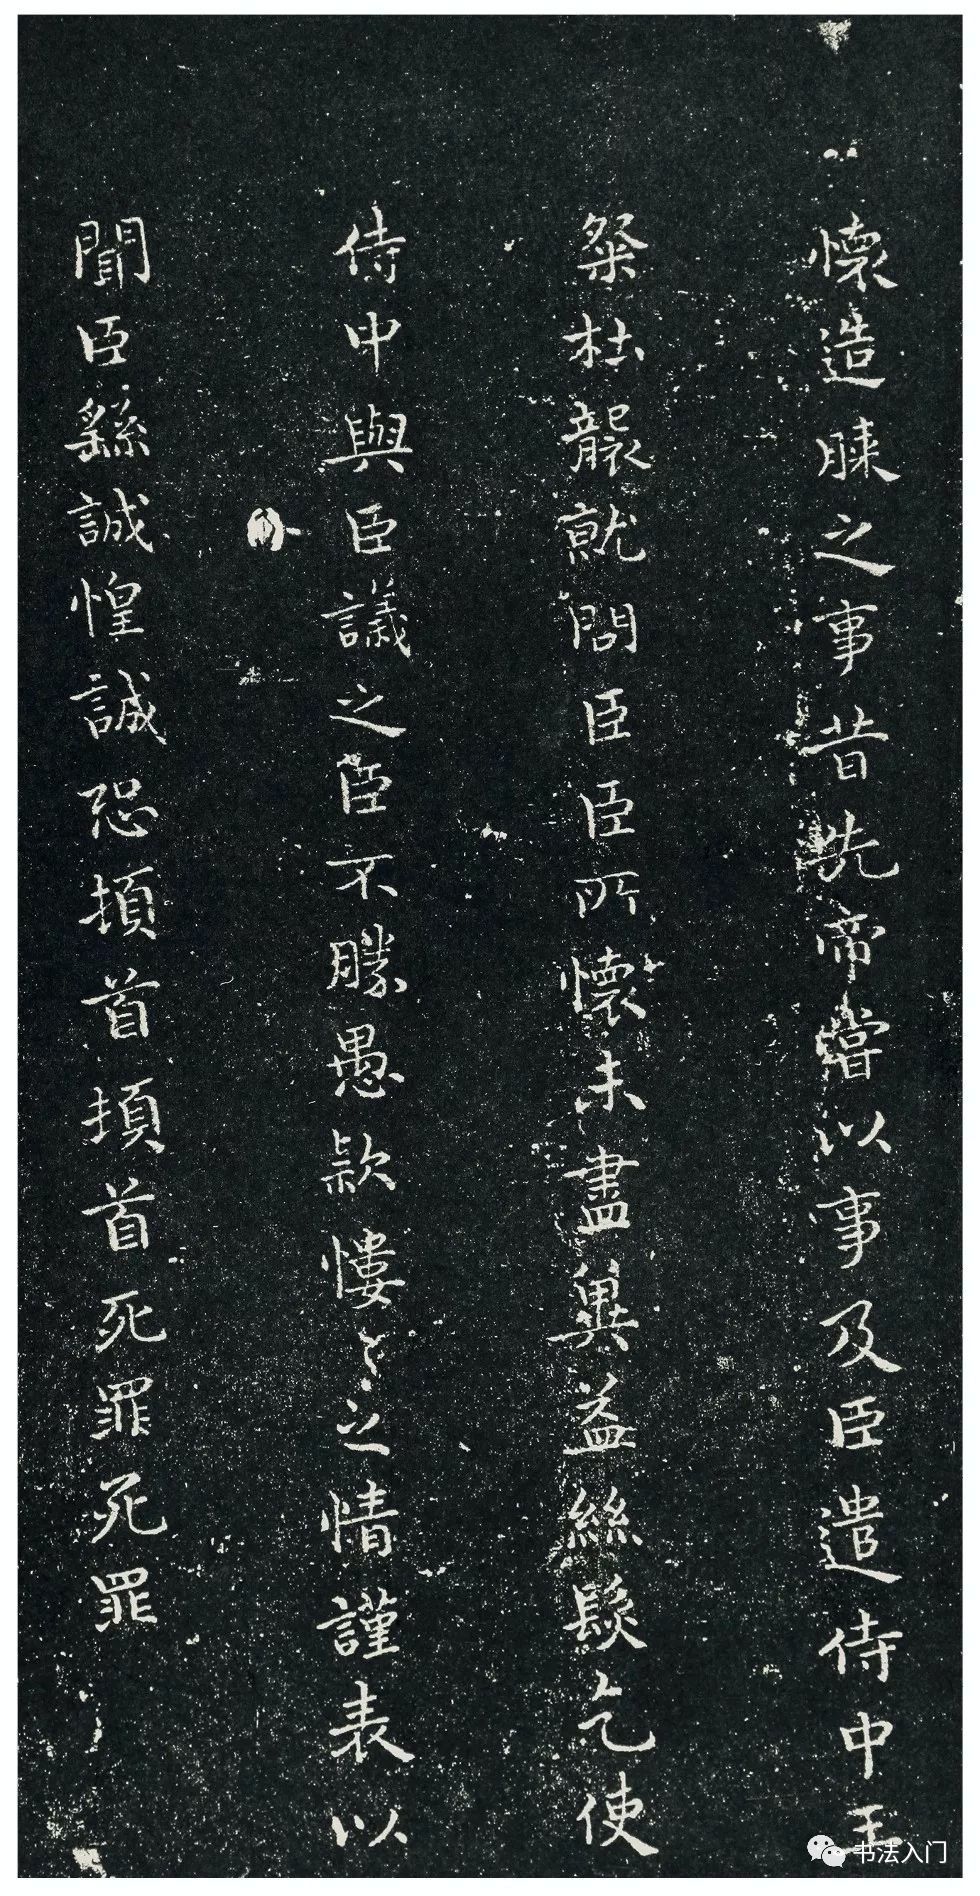 懷造膝之事昔先帝嘗以事及臣遣侍中王
粲杜襲就問臣臣所懷未盡冀益絲髮乞使
侍中與臣議之臣不勝愚款慺〻之情謹表以
聞臣繇誠惶誠恐頓首頓首死罪死罪
书法入门